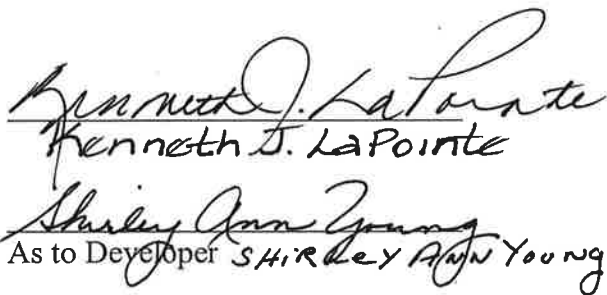 Kenneth J. LaPointe
Kenneth J. LaPointe
Shirley Ann Young
As to Developer SHiRLeY ANN YouNg